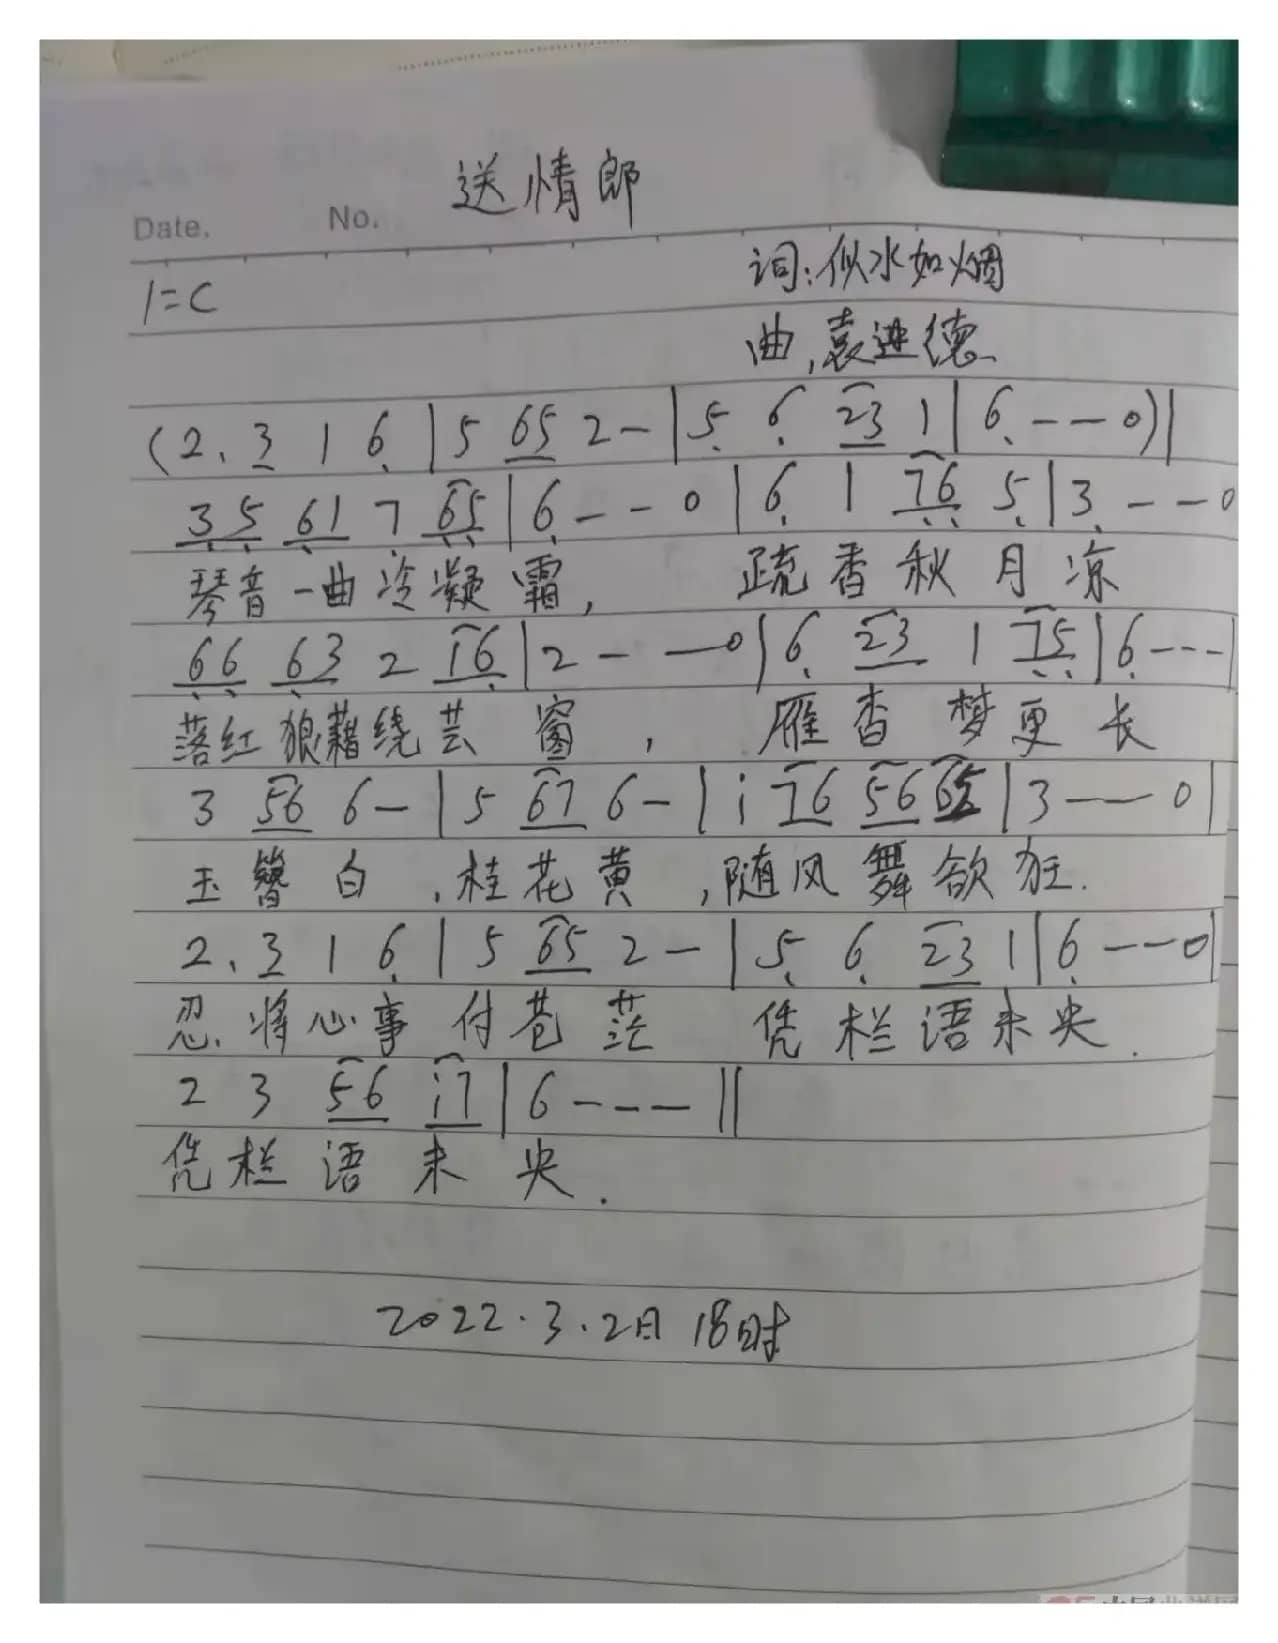 送情郎
Date. No.
1=C
词:似水如烟
曲,袁进德
(2. 3 1 6 | 5 65 2 - | 5 6 23 1 | 6 - - 0) |
35 61 7 65 | 6 - - 0 | 6 1 76 5 | 3 - - 0
琴音一曲冷凝霜, 疏香秋月凉
66 63 2 16 | 2 - - 0 | 6 23 1 75 | 6 - - - |
落红狼藉绕芸窗, 雁杳梦更长
3 56 6 - | 5 67 6 - | i 76 56 65 | 3 - - 0 |
玉簪白,桂花黄,随风舞欲狂.
2. 3 1 6 | 5 65 2 - | 5 6 23 1 | 6 - - 0 |
忍将心事付苍茫 凭栏语未央.
2 3 56 i7 | 6 - - - ||
凭栏语未央.
2022.3.2日 18时